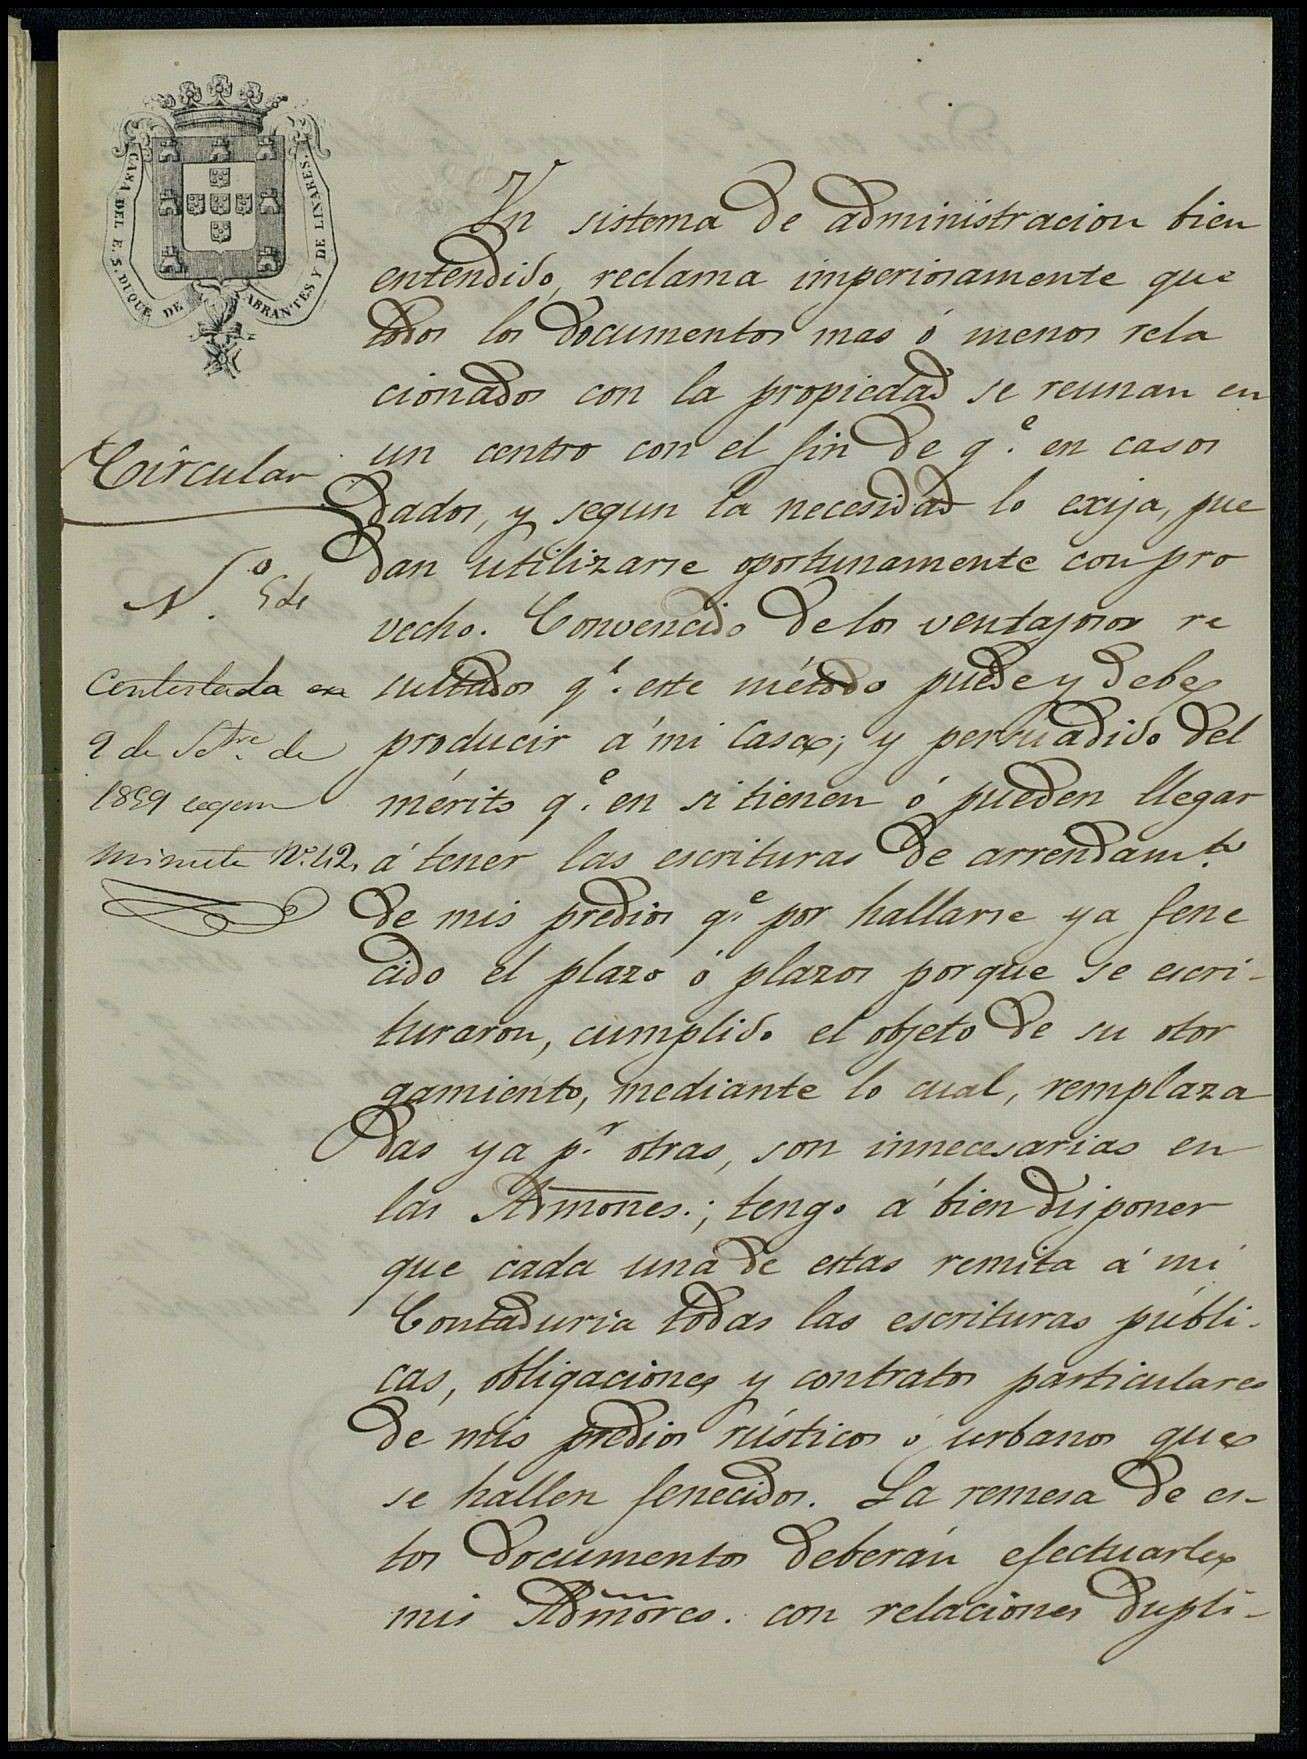 CASA DEL E. S. DUQUE DE ABRANTES Y DE LINARES.
Circular
N.º 54
Contestada en
2 de Setre. de
1859 segun
minuta Nº. 42.
Un sistema de administracion bien
entendido, reclama imperiosamente que
todos los documentos mas ó menos rela
cionados con la propiedad se reunan en
un centro con el fin de q.e en casos
dados, y segun la necesidad lo exija, pue
dan utilizarse oportunamente con pro
vecho. Convencido de los ventajosos re
sultados q.e este método puede y debe
producir á mi casa; y persuadido del
mérito q.e en si tienen ó pueden llegar
á tener las escrituras de arrendam.to
de mis predios q.e por hallarse ya fene
cido el plazo ó plazos porque se escri-
turaron, cumplido el objeto de su otor
gamiento, mediante lo cual, remplaza
das ya p.r otras, son innecesarias en
las Admones.; tengo á bien disponer
que cada una de estas remita á mi
Contaduria todas las escrituras públi-
cas, obligaciones y contratos particulares
de mis predios rústicos ó urbanos que
se hallen fenecidos. La remesa de es-
tos documentos deberán efectuarla
mis Admores. con relaciones dupli-